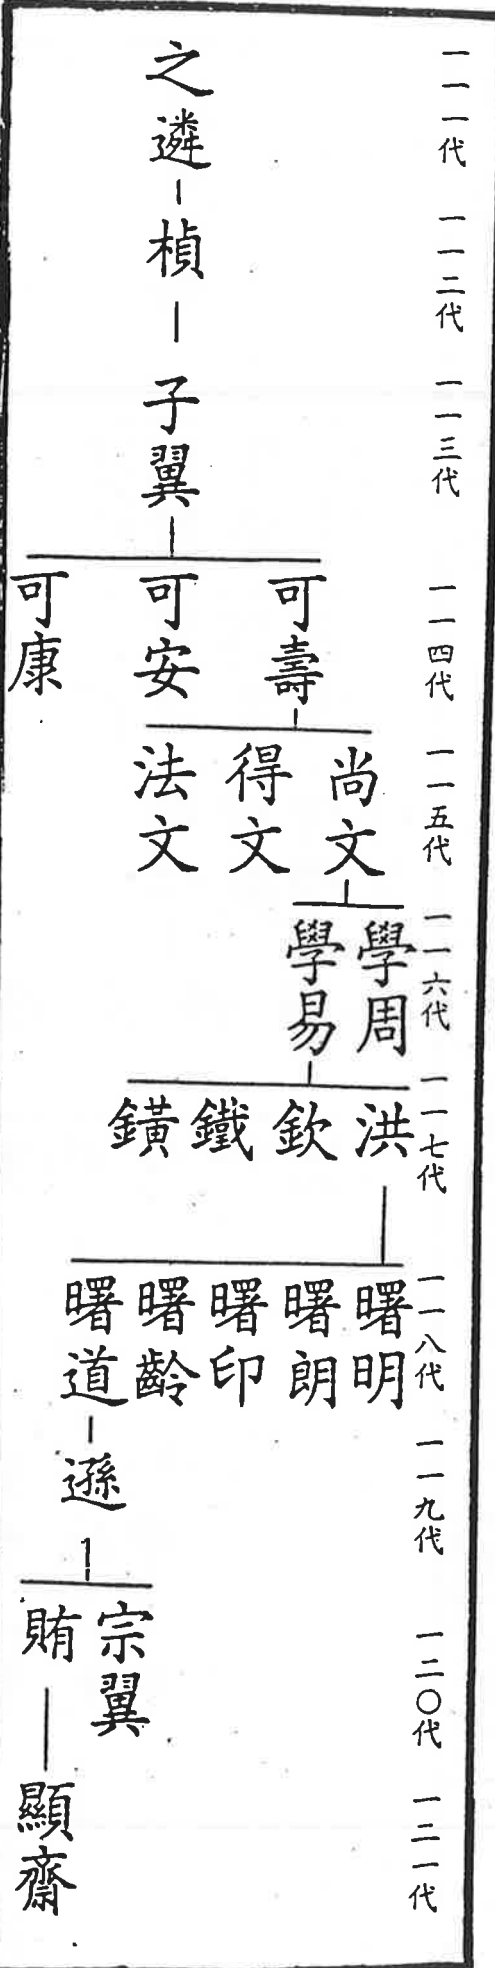 一一一代
一一二代
一一三代
一一四代
一一五代
一一六代
一一七代
一一八代
一一九代
一二〇代
一二一代
之遴
楨
子翼
可壽
可安
可康
尚文
得文
法文
學周
學易
洪
欽
鐵
鐄
曙明
曙朗
曙印
曙齡
曙道
遜
宗翼
賄
顯齋